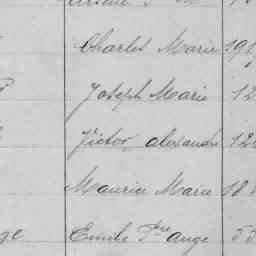 Charles Marie
Joseph Marie 12
Victor, alexandre
Maurice Marie 18
Emile Pre ange 53